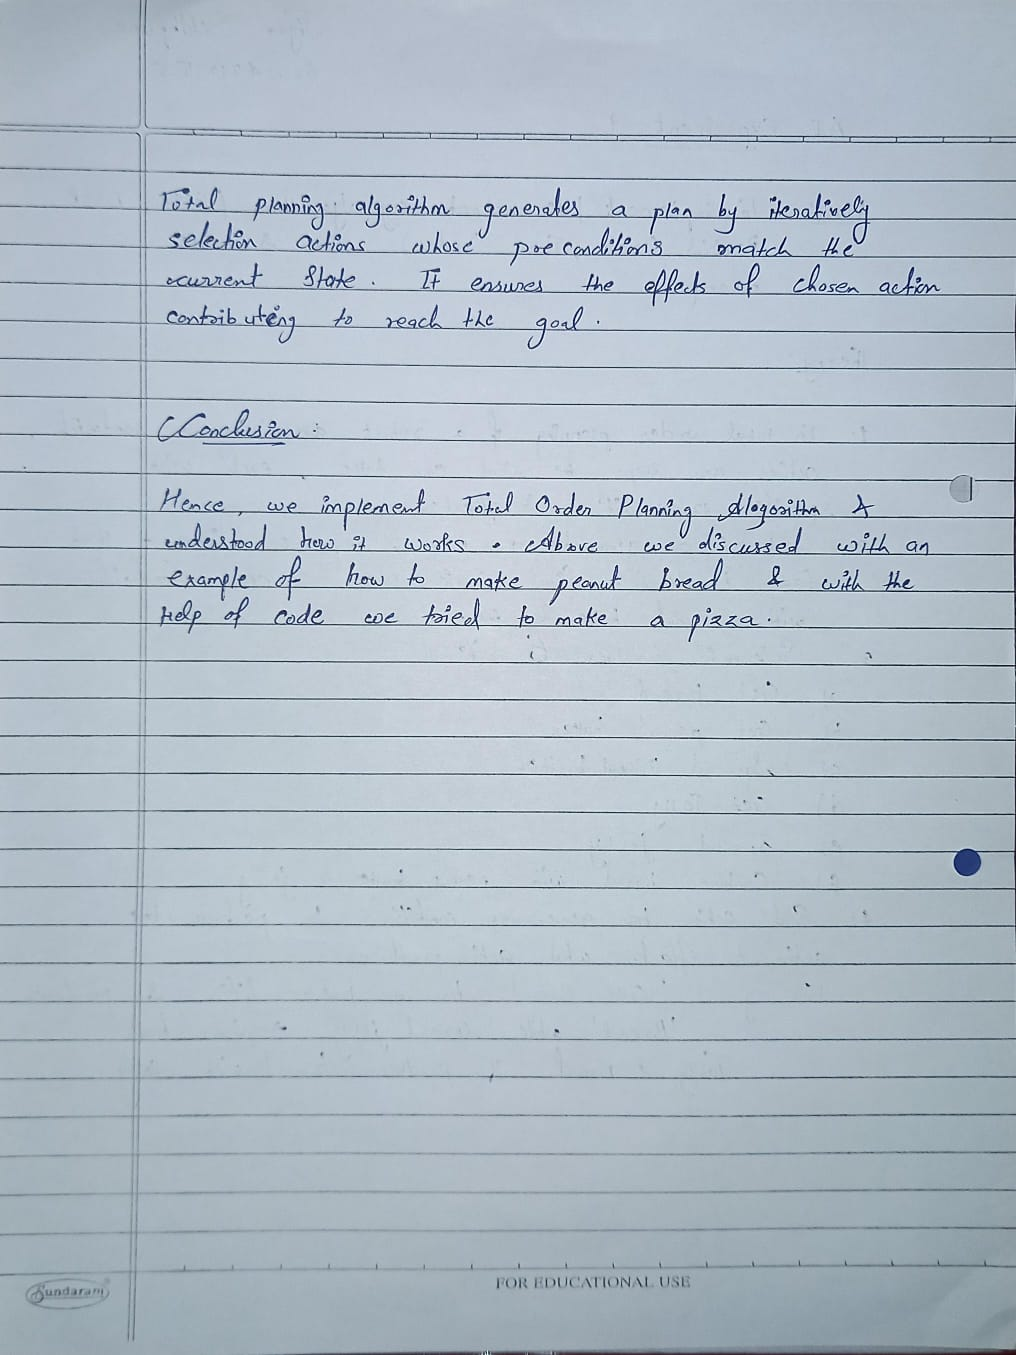 Total planning algorithm generates a plan by iteratively
selection actions whose preconditions match the
current state. It ensures the effects of chosen action
contributing to reach the goal.
Conclusion:
Hence, we implement Total Order Planning Alogorithm &
understood how it works. Above we discussed with an
example of how to make peanut bread & with the
help of code we tried to make a pizza.
Sundaram
FOR EDUCATIONAL USE